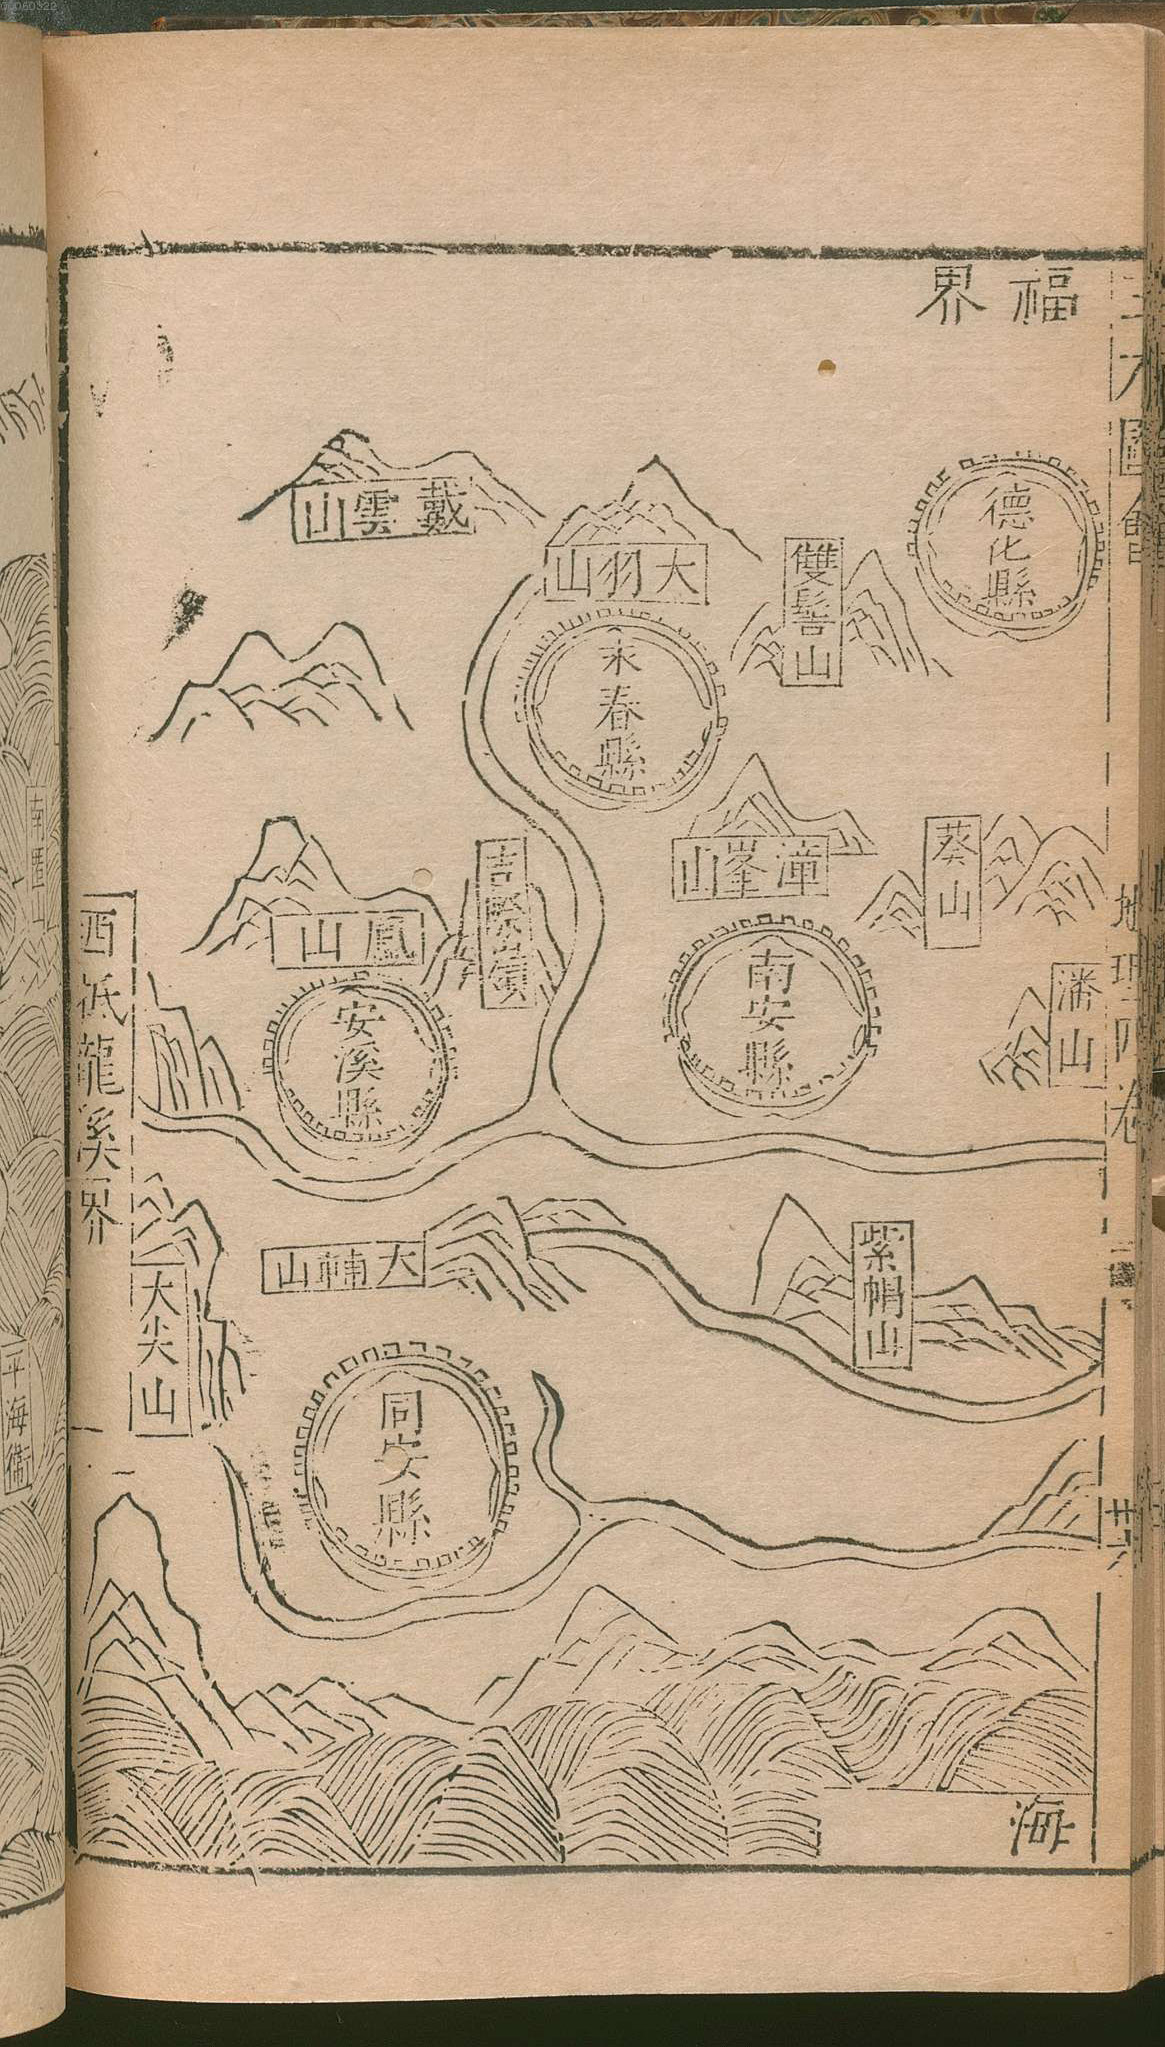 00060322
三才圖會
地理四卷
廿六
福界
德化縣
雙髻山
大羽山
戴雲山
永春縣
葵山
潘山
潼峯山
南安縣
鳳山
安溪縣
西抵龍溪界
紫帽山
大輔山
大尖山
同安縣
海
南匯
平海衞